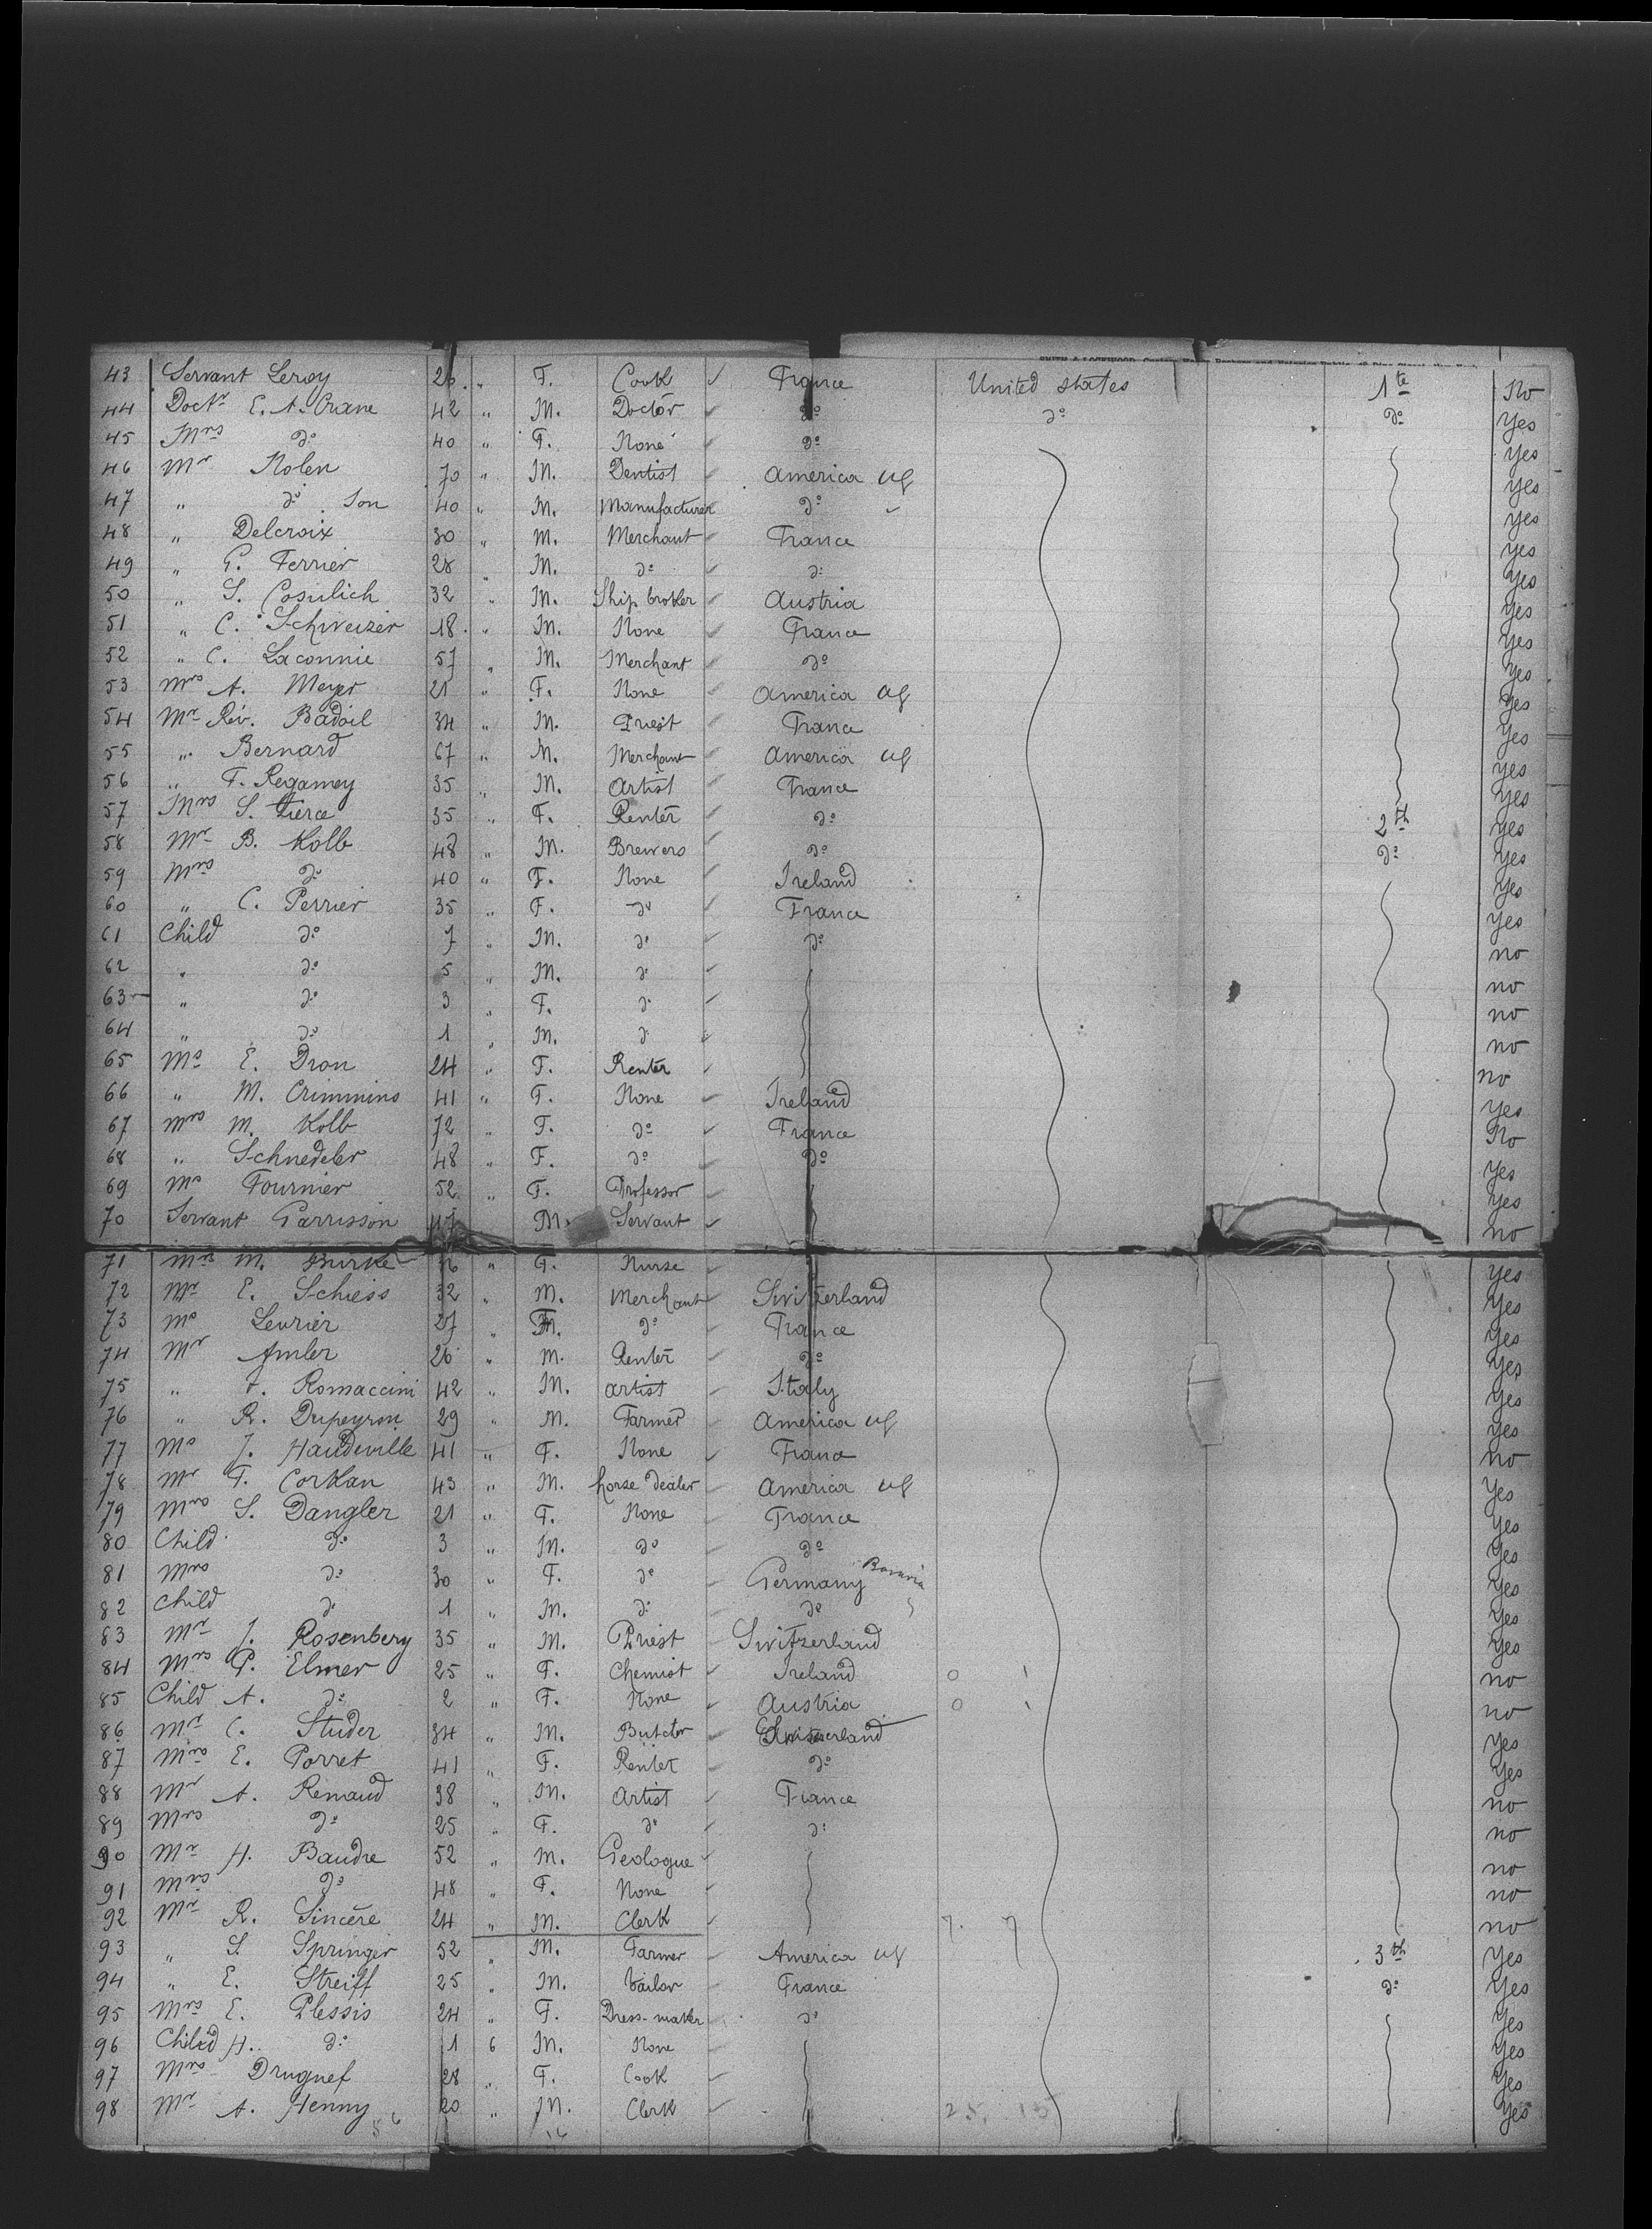 43 Servant Leroy 26 " F. Cook France United states 1te No
44 Doctr E. A. Crane 42 " M. Doctor do do do Yes
45 Mrs do 40 " F. None do Yes
46 Mr Nolen 70 " M. Dentist America Yes
47 " do Son 40 " M. Manufacturer do Yes
48 " Delcroix 30 " M. Merchant France Yes
49 " G. Ferrier 28 " M. do do Yes
50 " S. Cosulich 32 " M. Ship broker Austria Yes
51 " C. Schweizer 18 " M. None France Yes
52 " C. Laconnie 57 " M. Merchant do Yes
53 Mrs A. Meyer 21 " F. None America Yes
54 Mr Rév. Badoil 34 " M. Priest France Yes
55 " Bernard 67 " M. Merchant America Yes
56 " F. Regamey 35 " M. Artist France Yes
57 Mrs S. Fierce 35 " F. Renter do 2th Yes
58 Mr B. Kolb 48 " M. Brewers do do Yes
59 Mrs do 40 " F. None Ireland Yes
60 " C. Perrier 35 " F. do France Yes
61 Child do 7 " M. do do no
62 " do 5 " M. do no
63 " do 3 " F. do no
64 " do 1 " M. do no
65 Ms E. Dron 24 " F. Renter no
66 " M. Crimmins 41 " F. None Ireland Yes
67 Mrs M. Kolb 72 " F. do France No
68 " Schnedeler 48 " F. do do Yes
69 Ms Fournier 52 " F. Professor Yes
70 Servant Garrisson M. Servant no
71 Mrs M. Burke " F. Nurse Yes
72 Mr E. Schiess 32 " M. Merchant Switzerland Yes
73 Ms Levrier 27 " do France Yes
74 Mr Amler 26 " M. Renter do Yes
75 " Romaccini 42 " M. artist Italy Yes
76 " R. Dupeyron 29 " M. Farmer America Yes
77 Ms J. Haudeville 41 " F. None France no
78 Mr F. Corklan 43 " M. horse dealer America Yes
79 Mrs S. Dangler 21 " F. None France Yes
80 Child do 3 " M. do do Yes
81 Mrs do 30 " F. do Germany Bavaria Yes
82 Child do 1 " M. do do Yes
83 Mr J. Rosenberg 35 " M. Priest Switzerland Yes
84 Mrs P. Elmer 25 " F. Chemist Ireland no
85 Child A. do 2 " F. None Austria no
86 Mr C. Studer 34 " M. Butcher Switzerland Yes
87 Mrs E. Porret 41 " F. Renter do Yes
88 Mr A. Renaud 38 " M. Artist France no
89 Mrs do 25 " F. do do no
90 Mr H. Baudre 52 " M. Geologue no
91 Mrs do 48 " F. None no
92 Mr R. Sincère 24 " M. Clerk no
93 " S. Springer 52 " M. Farmer America 3th Yes
94 " E. Streiff 25 " M. tailor France do Yes
95 Mrs E. Plessis 24 " F. Dress-maker do Yes
96 Child H. do 1 6 M. None Yes
97 Mrs Drugnef 28 " F. Cook Yes
98 Mr A. Henny 20 " M. Clerk Yes